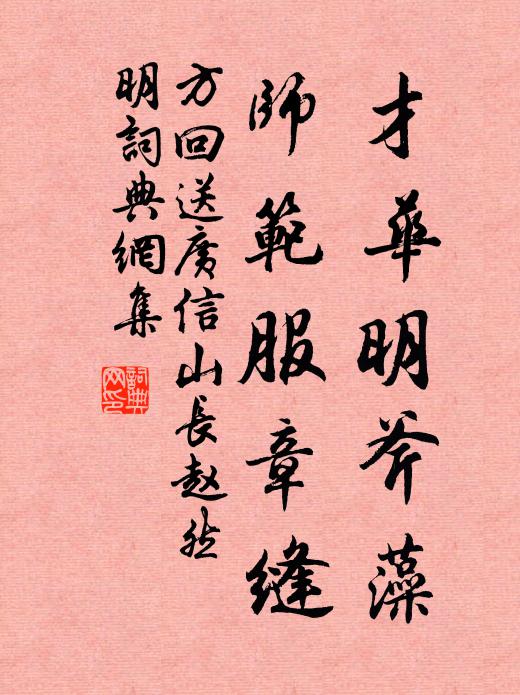 才華明斧藻
師範服章縫
方回送廣信山長赵然
明詞典網集
詞典網印